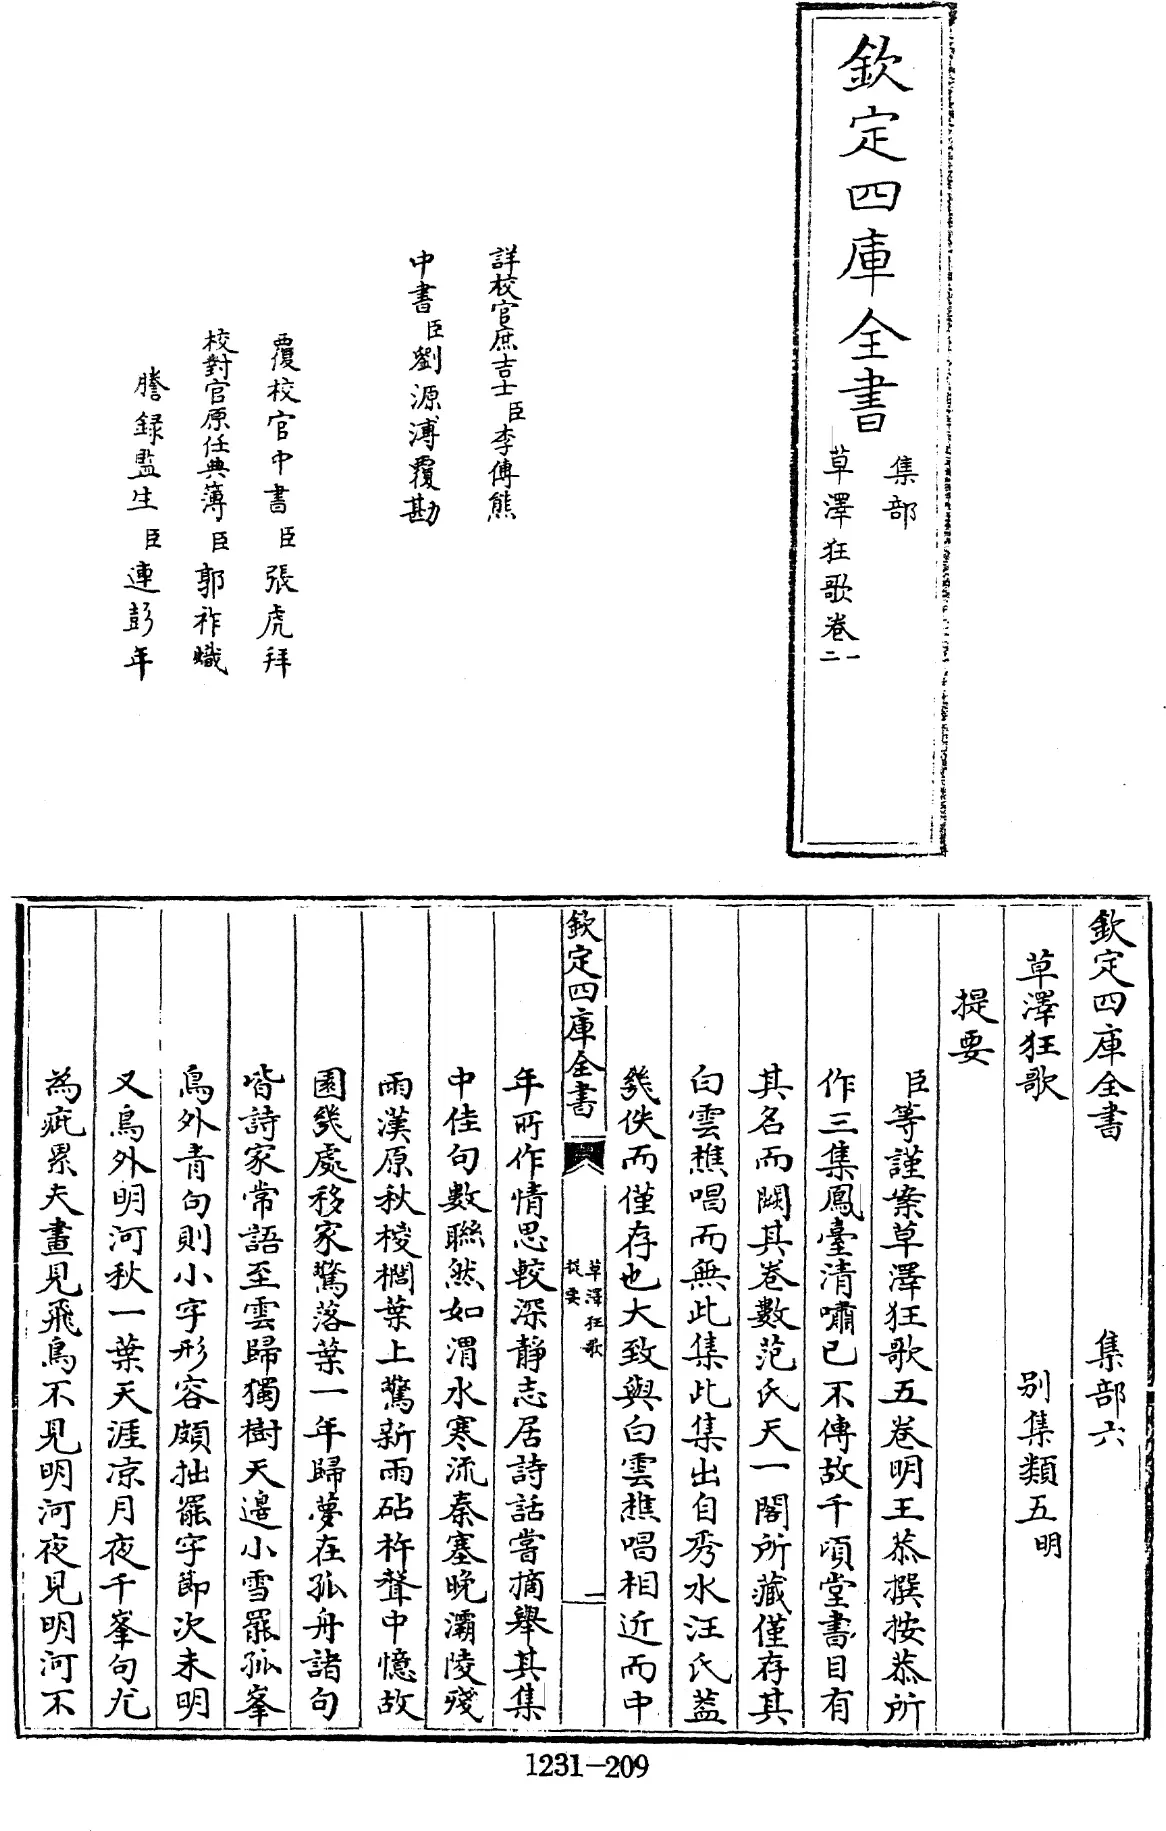 欽定四庫全書
集部
草澤狂歌卷一二
詳校官庶吉士臣李傳熊
中書臣劉源溥覆勘
覆校官中書臣張虎拜
校對官原任典簿臣郭祚熾
謄録監生臣連彭年
欽定四庫全書 集部六
草澤狂歌 别集類五明
提要
臣等謹案草澤狂歌五卷明王恭撰按恭所
作三集鳳臺清嘯已不傳故千頃堂書目有
其名而闕其卷數范氏天一閣所藏僅存其
白雲樵唱而無此集此集出自秀水汪氏葢
幾佚而僅存也大致與白雲樵唱相近而中
欽定四庫全書
草澤狂歌
提要
一
年所作情思較深靜志居詩話嘗摘舉其集
中佳句數聯然如渭水寒流秦塞晚灞陵殘
雨漢原秋棱櫚葉上驚新雨砧杵聲中憶故
園幾處移家驚落葉一年歸夢在孤舟諸句
皆詩家常語至雲歸獨樹天邊小雪罷孤峯
鳥外青句則小字形容頗拙罷字節次未明
又鳥外明河秋一葉天涯凉月夜千峯句尤
為疵累夫晝見飛鳥不見明河夜見明河不
1231-209